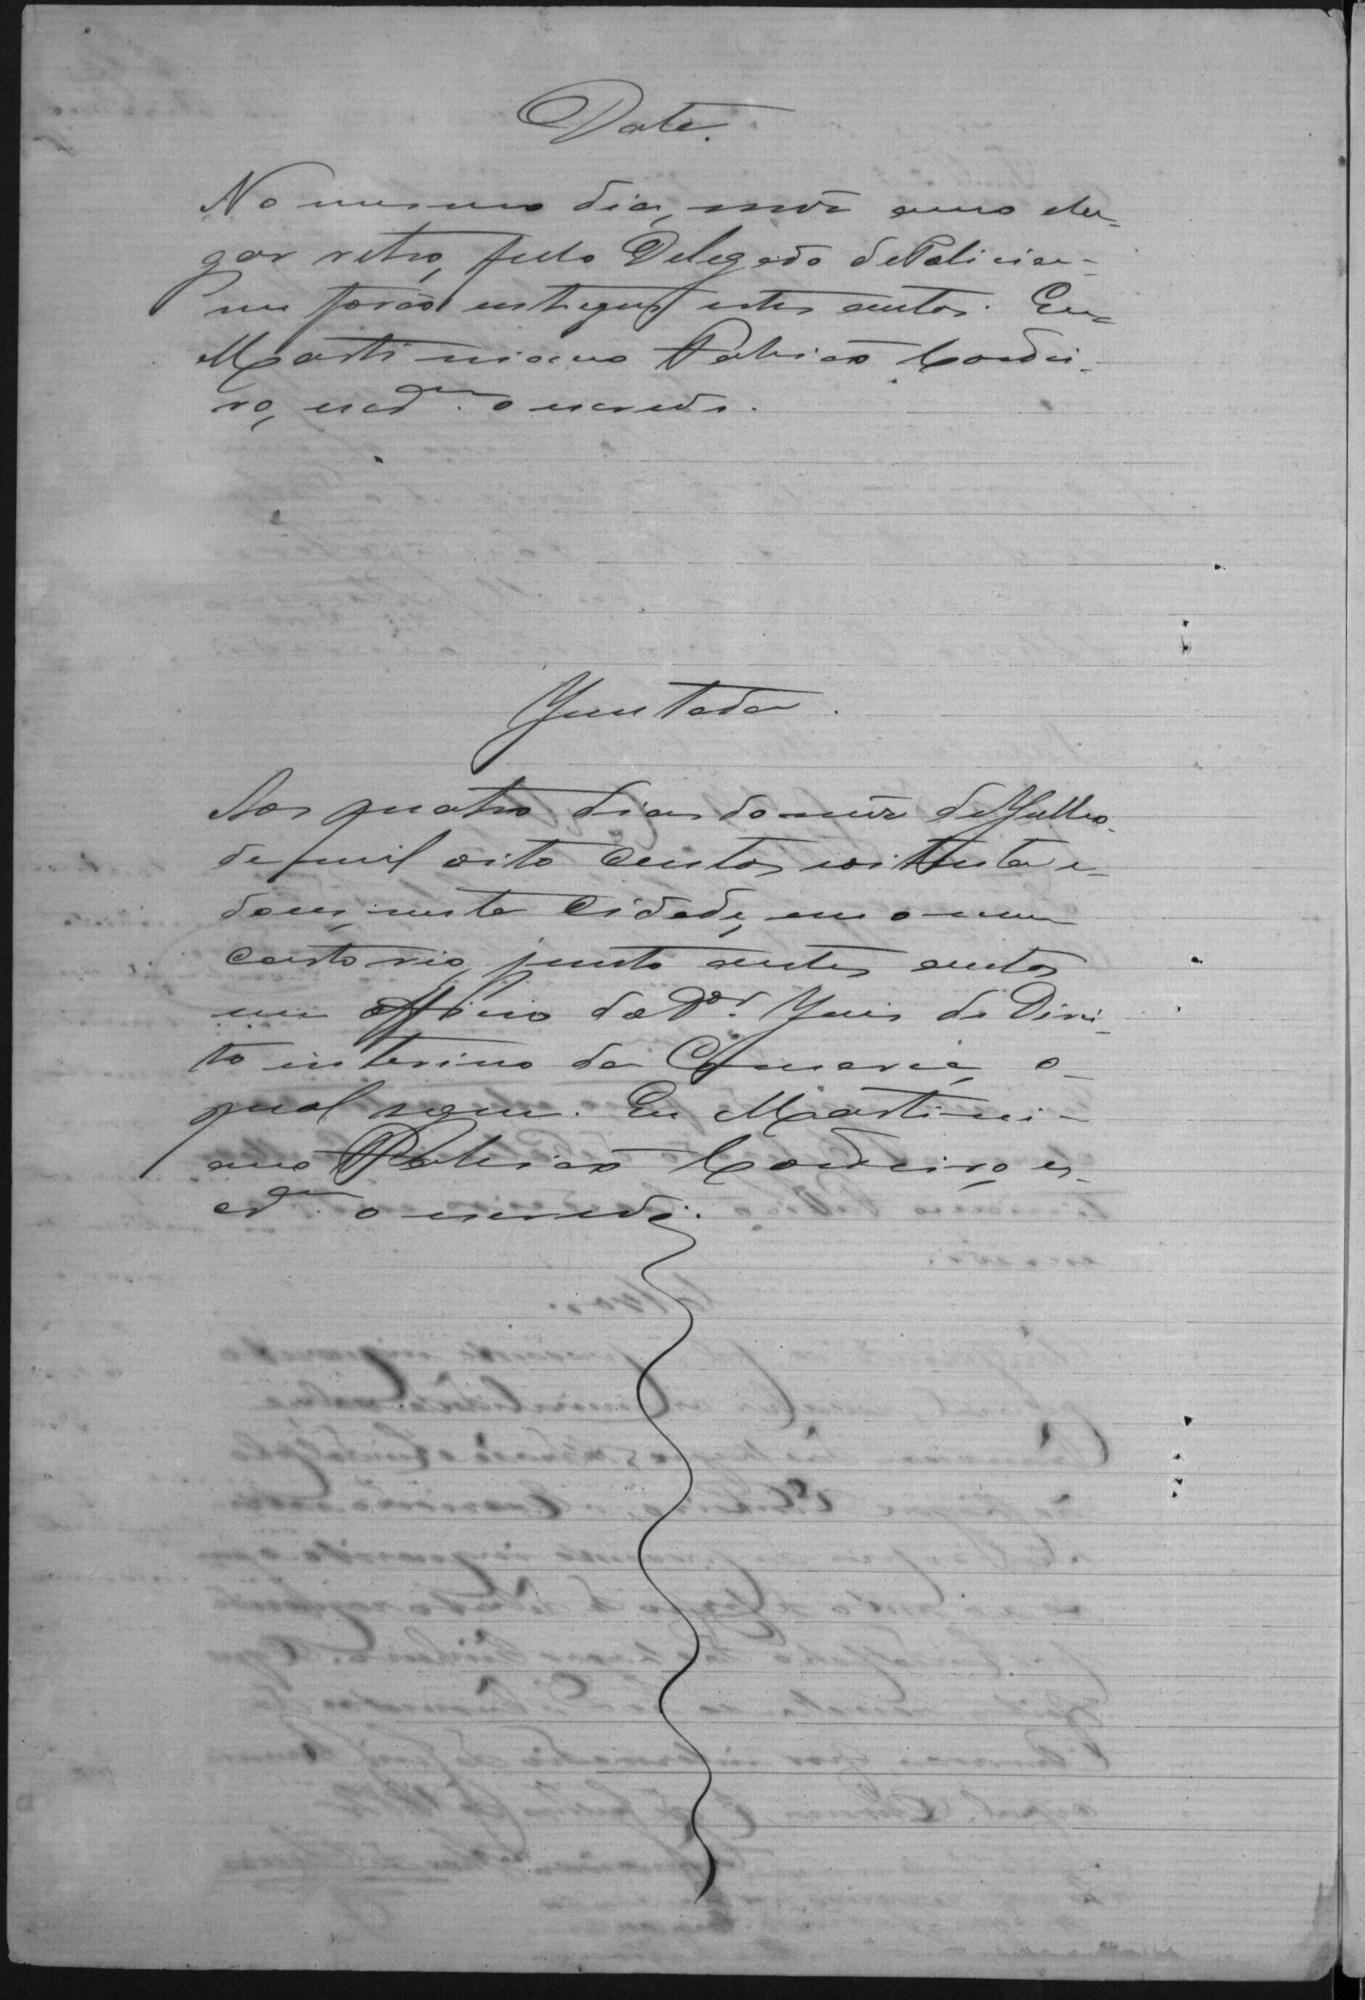 Data.
No mesmo dia, mez anno e lu-
gar retro, pelo Delegado de Policia-
me forão entregues estes autos. Eu-
Martiniano Patricio Cordei-
ro, escr.am o escrevi.
Juntada.
Aos quatro dias do mez de Julho
de mil oito centos e oitenta e-
dous, nesta Cidade, em o meu
cartorio, junto a estes autos
um officio do D.or Juis de Direi-
to interino da Comarca, o-
qual segue. Eu Martini-
ano Patricio Cordeiro, es-
cr.am o escrevi.